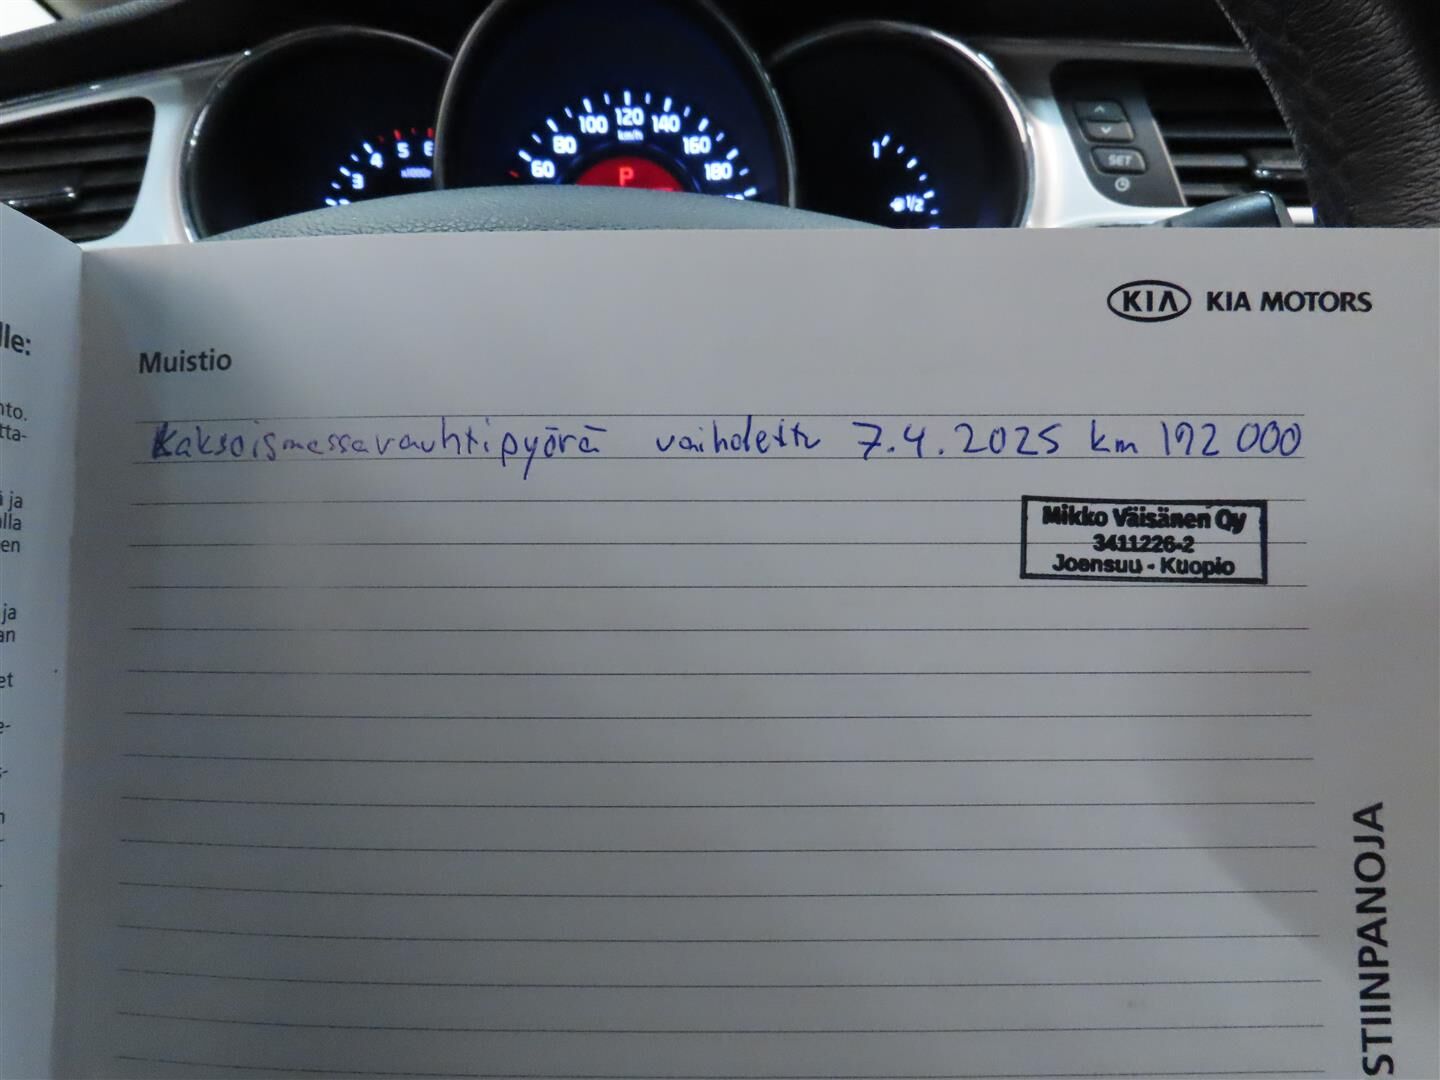 4 5 6
3
x1000r
60 80 100 120 140 160 180
km/h
P
1
1/2
SET
lle:
nto.
tta-
ä ja
olla
en
ja
an
et
e-
s-
n
KIA KIA MOTORS
Muistio
Kaksoismassavauhtipyörä vaihdettu 7.4.2025 km 192 000
Mikko Väisänen Oy
3411226-2
Joensuu - Kuopio
STIINPANOJA